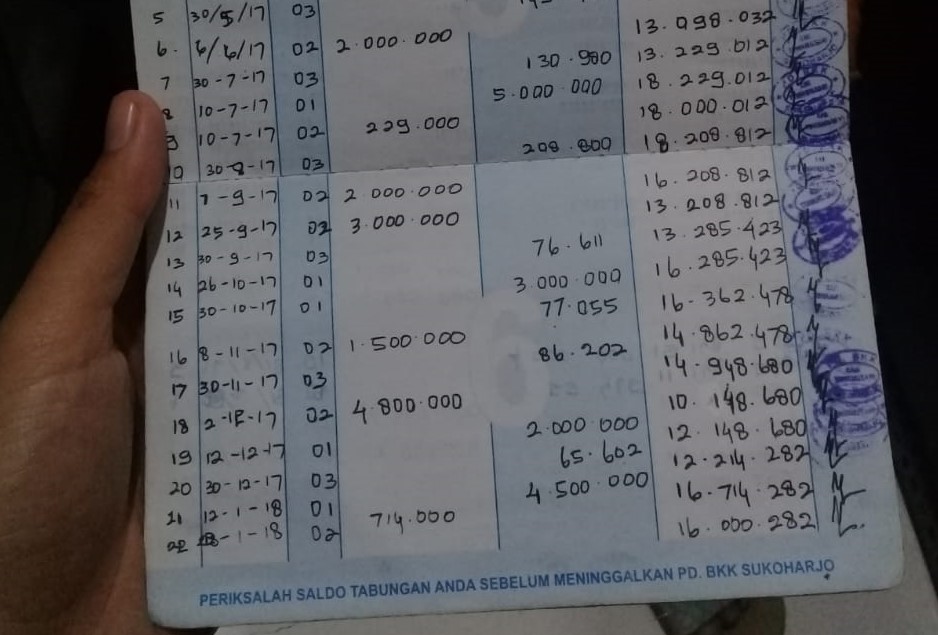 5 30/5/17 03 13.098.032
6. 6/6/17 02 2.000.000
7 30-7-17 03 130.980 13.229.012
8 10-7-17 01 5.000.000 18.229.012
9 10-7-17 02 229.000 18.000.012
10 30-8-17 03 208.800 18.208.812
11 7-9-17 02 2.000.000 16.208.812
12 25-9-17 02 3.000.000 13.208.812
13 30-9-17 03 76.611 13.285.423
14 26-10-17 01 3.000.000 16.285.423
15 30-10-17 01 77.055 16.362.478
16 8-11-17 02 1.500.000 14.862.478
17 30-11-17 03 86.202 14.948.680
18 2-12-17 02 4.800.000 10.148.680
19 12-12-17 01 2.000.000 12.148.680
20 30-12-17 03 65.602 12.214.282
21 12-1-18 01 4.500.000 16.714.282
22 28-1-18 02 714.000 16.000.282
PERIKSALAH SALDO TABUNGAN ANDA SEBELUM MENINGGALKAN PD. BKK SUKOHARJO